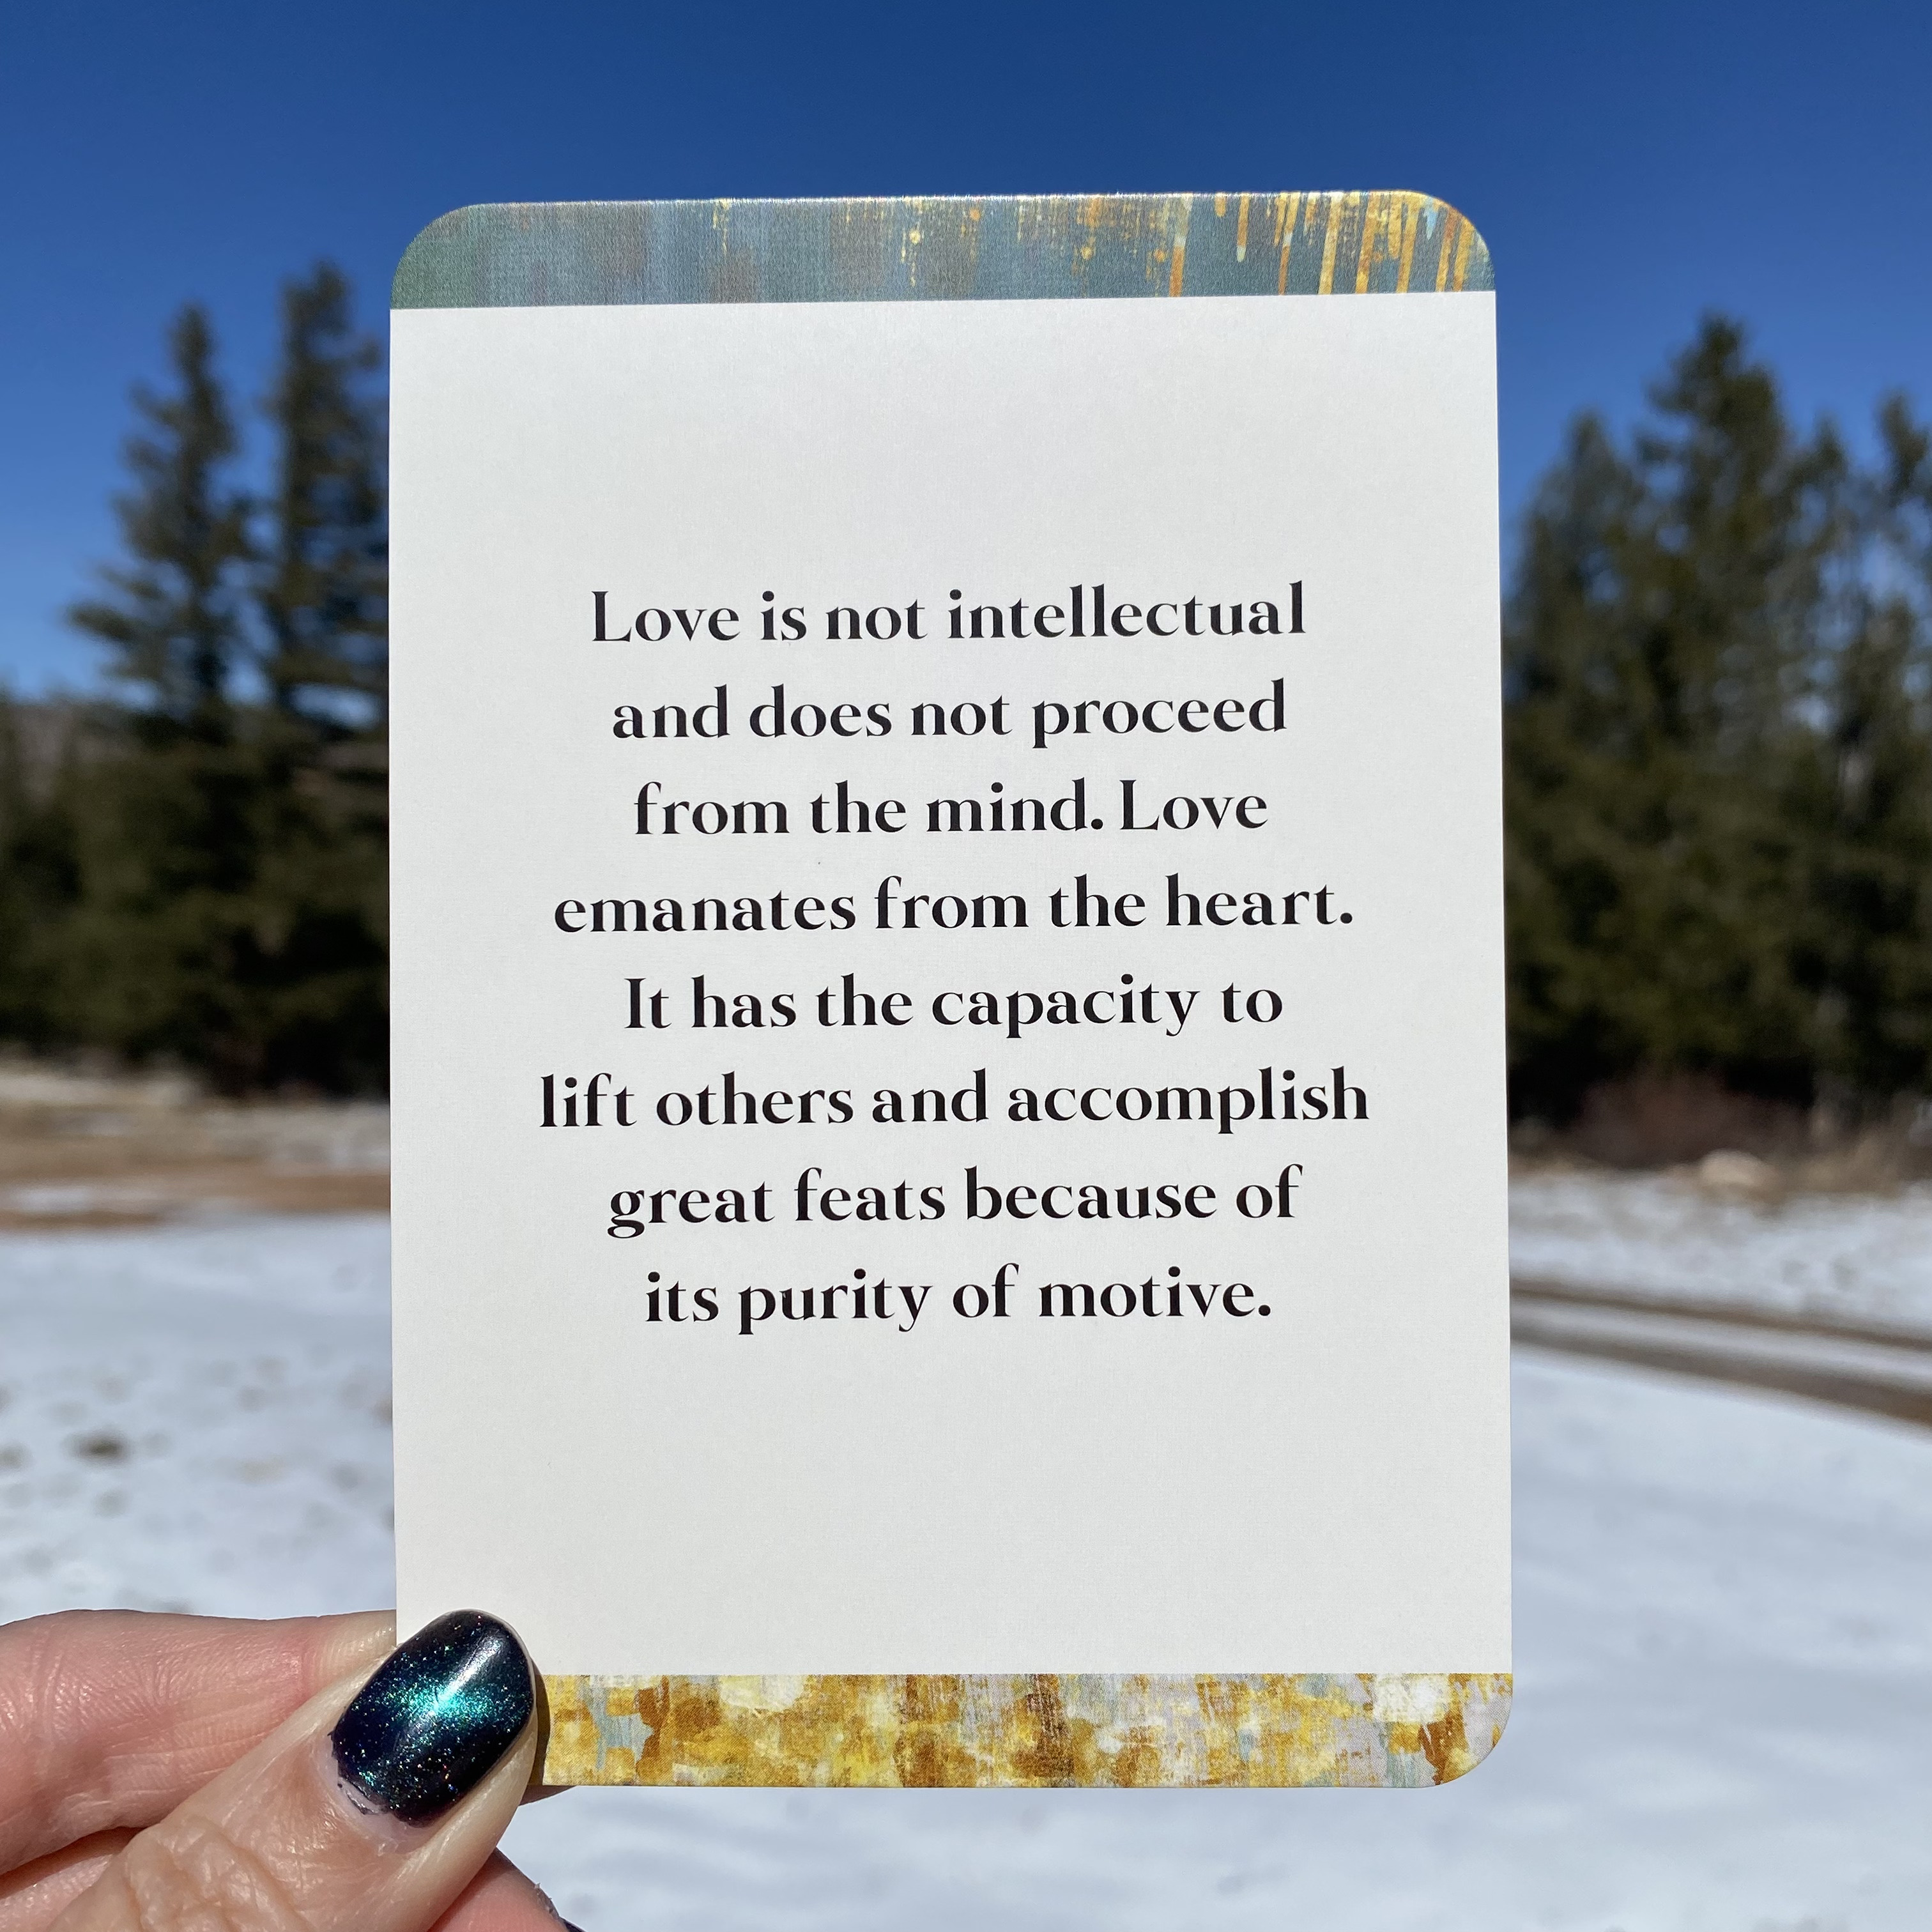 Love is not intellectual
and does not proceed
from the mind. Love
emanates from the heart.
It has the capacity to
lift others and accomplish
great feats because of
its purity of motive.